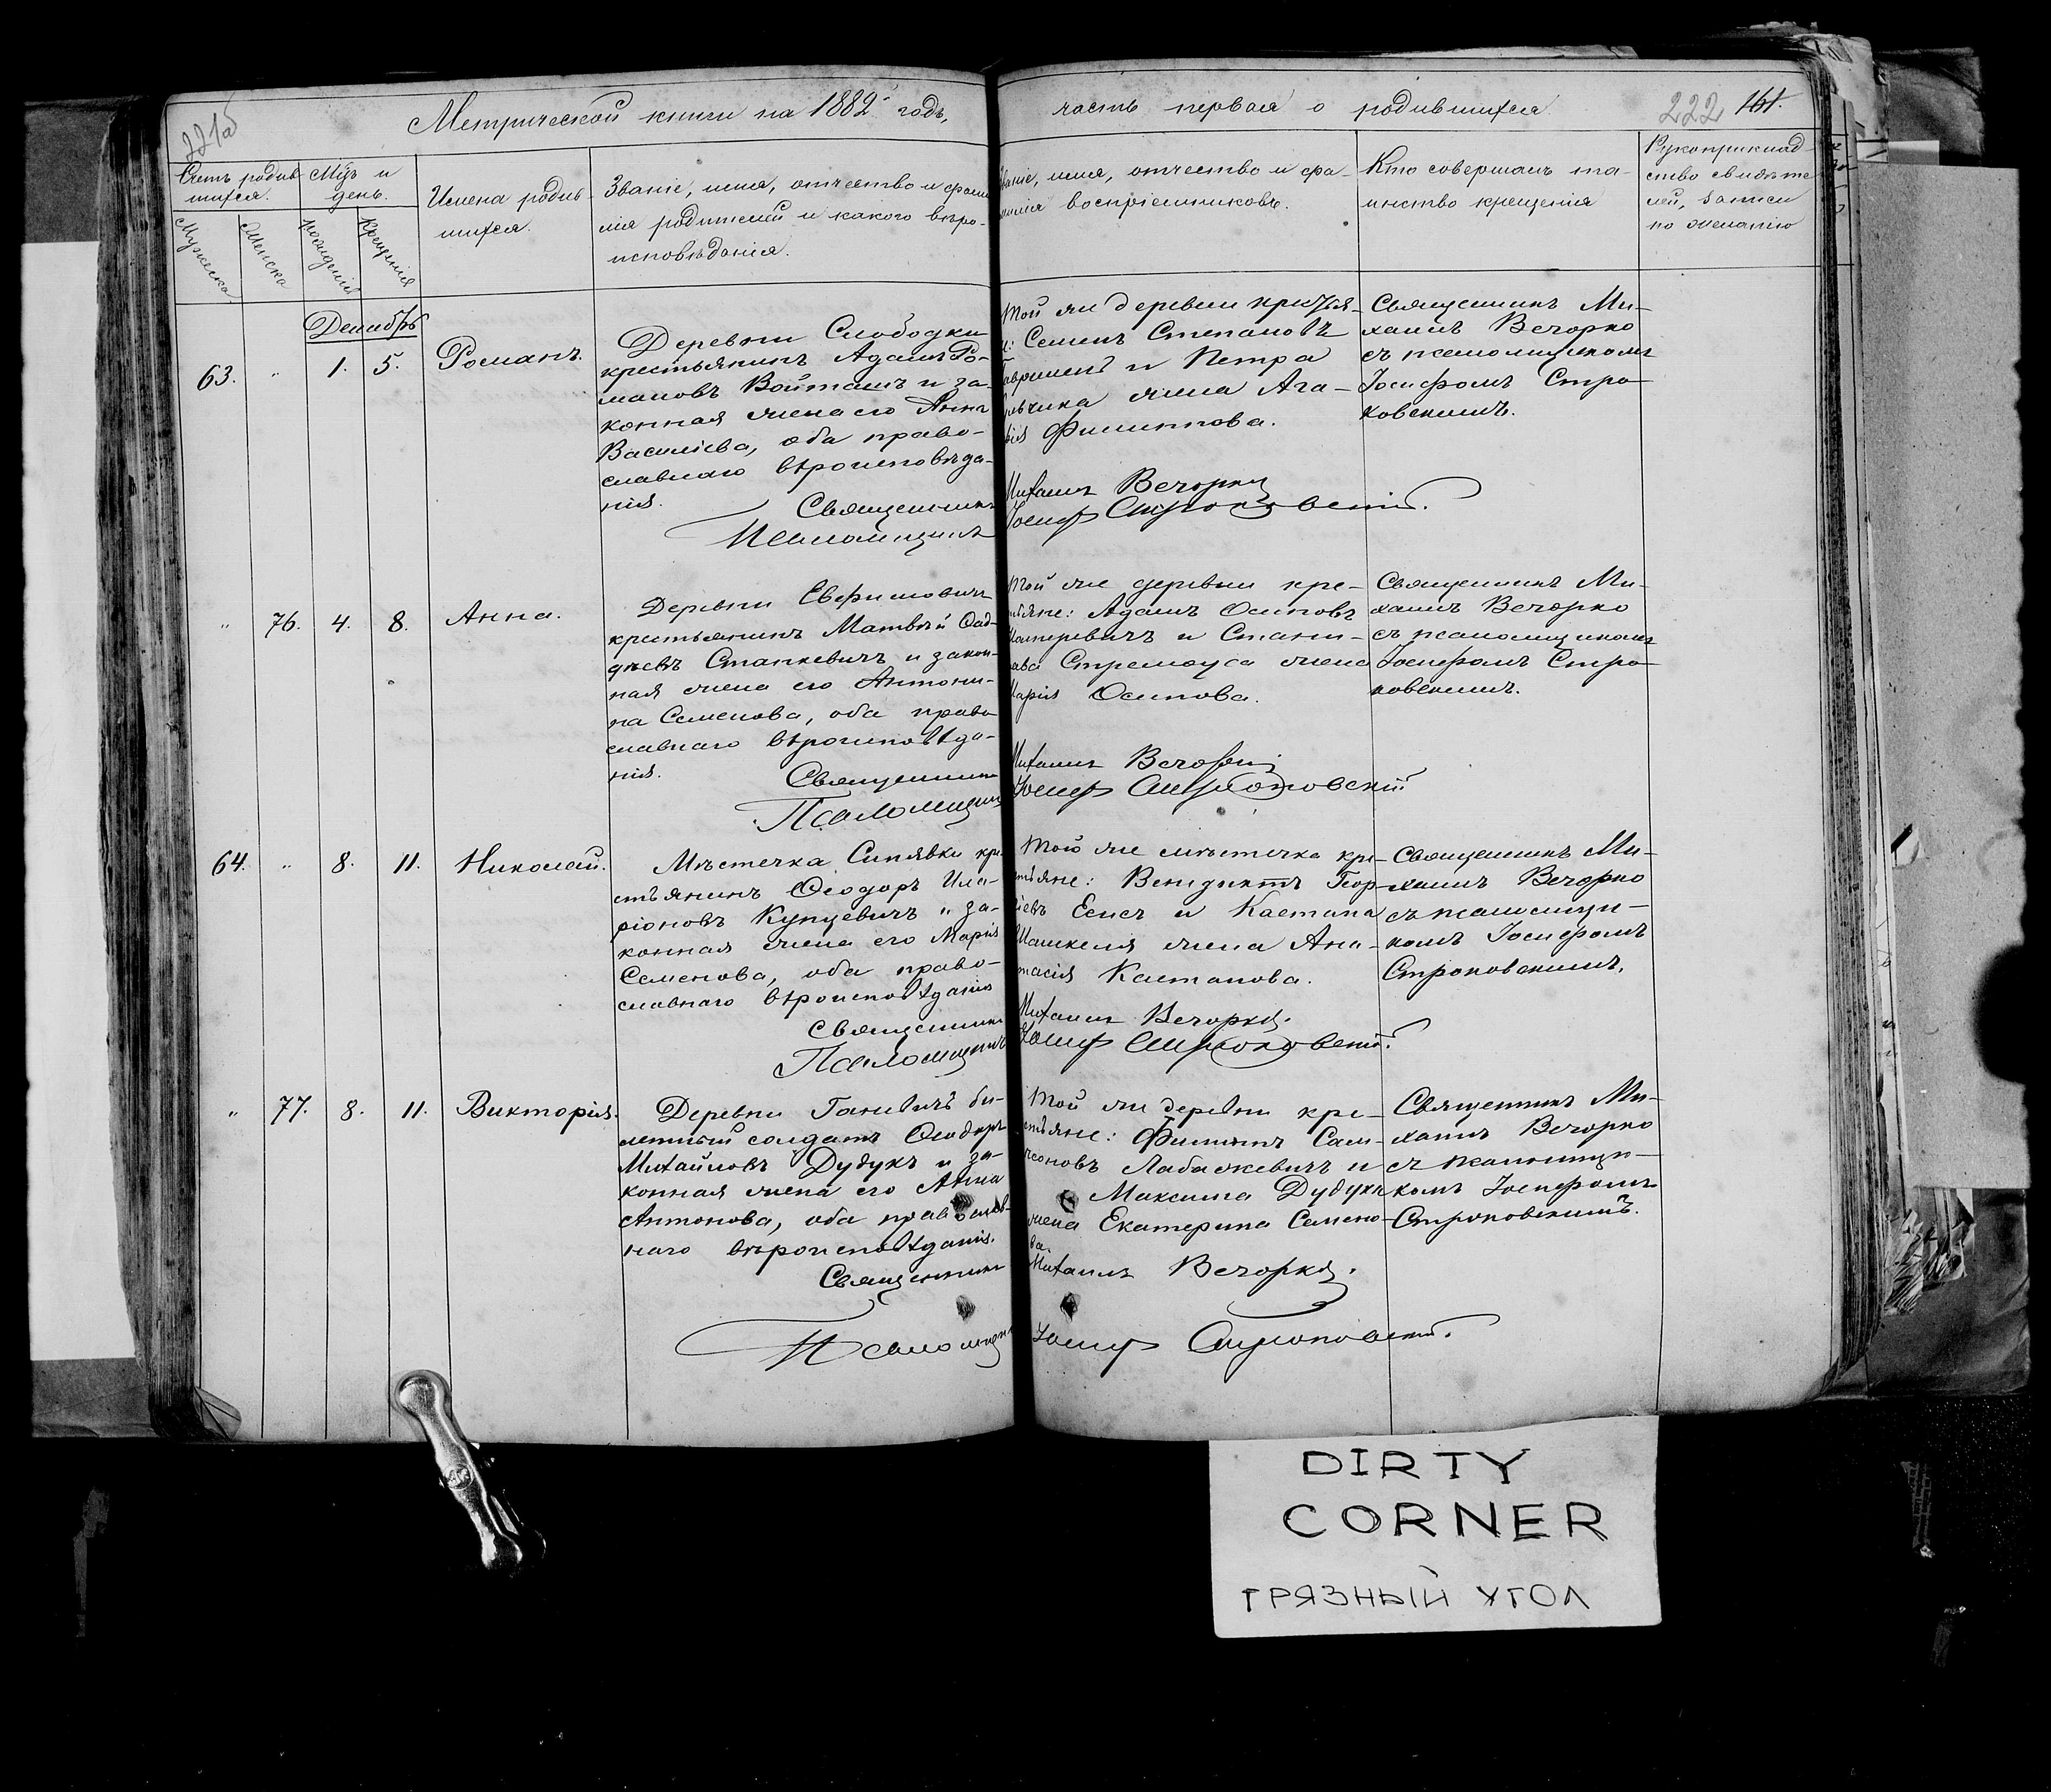 221а
Метрической книги на 1882 годъ,
часть первая о родившихся.
222 161.
Счетъ родив-
шихся.
Мужеска
Женска
Мѣс. и
день.
рожденія
Крещенія
Имена родив-
шихся.
Званіе, имя, отчество и фами-
лія родителей и какого вѣро-
исповѣданія.
Званіе, имя, отчество и фа-
милія воспріемниковъ.
Кто совершалъ та-
инство крещенія
Рукоприклад-
ство свидѣте
лей, записи
по желанію
Декабрь
63. " 1. 5. Романъ.
Деревни Слободки
крестьянинъ Адамъ Ро-
мановъ Войташъ и за-
конная жена его Анна
Васильева, оба право-
славнаго вѣроисповѣда-
нія.
Священникъ
Псаломщикъ
той же деревни крестья-
Семенъ Степановъ
и Петра
жена Ага-
Филиппова.
Михаилъ Вечорко
Іосифъ Строковскій.
Священникъ Ми-
хаилъ Вечорко
съ псаломщикомъ
Іосифомъ Стро-
ковскимъ.
" 76. 4. 8. Анна.
Деревни Евфимовичъ
крестьянинъ Матвѣй Фад-
дѣевъ Станкевичъ и закон-
ная жена его Антони-
на Семенова, оба право
славнаго вѣроисповѣда-
нія.
Священникъ
Псаломщикъ
той же деревни кре-
стьяне: Адамъ Осиповъ
и Стани-
слава Стремоуса жена
Марія Осипова.
Михаилъ Вечорко
Іосифъ Строковскій
Священникъ Ми-
хаилъ Вечорко
съ псаломщикомъ
Іосифомъ Стро-
ковскимъ.
64. " 8. 11. Николай.
Мѣстечка Синявки кре-
стьянинъ Ѳеодоръ Ила-
ріоновъ Купцевичъ и за-
конная жена его Марія
Семенова, оба право-
славнаго вѣроисповѣданія
Священникъ
Псаломщикъ
той же мѣстечка кре-
стьяне: Венедиктъ Геор-
гіевъ Есис и Каетана
Машкеля жена Ана-
стасія Каетанова.
Михаилъ Вечорко.
Іосифъ Строковскій.
Священникъ Ми-
хаилъ Вечорко
съ псаломщи-
комъ Іосифомъ
Строковскимъ.
" 77. 8. 11. Викторія.
Деревни Ганевичъ би-
летный солдатъ Ѳеодоръ
Михайловъ Дудукъ и за-
конная жена его Анна
Антонова, оба православ-
наго вѣроисповѣданія.
Священникъ
Псаломщикъ
той же деревни кре-
стьяне: Филиппъ Сам-
соновъ Лабажевичъ и
Максима Дудука
жена Екатерина Семено-
ва.
Михаилъ Вечорко.
Іосифъ Строковскій.
Священникъ Ми-
хаилъ Вечорко
съ псаломщи-
комъ Іосифомъ
Строковскимъ.
DIRTY
CORNER
ГРЯЗНЫЙ УГОЛ